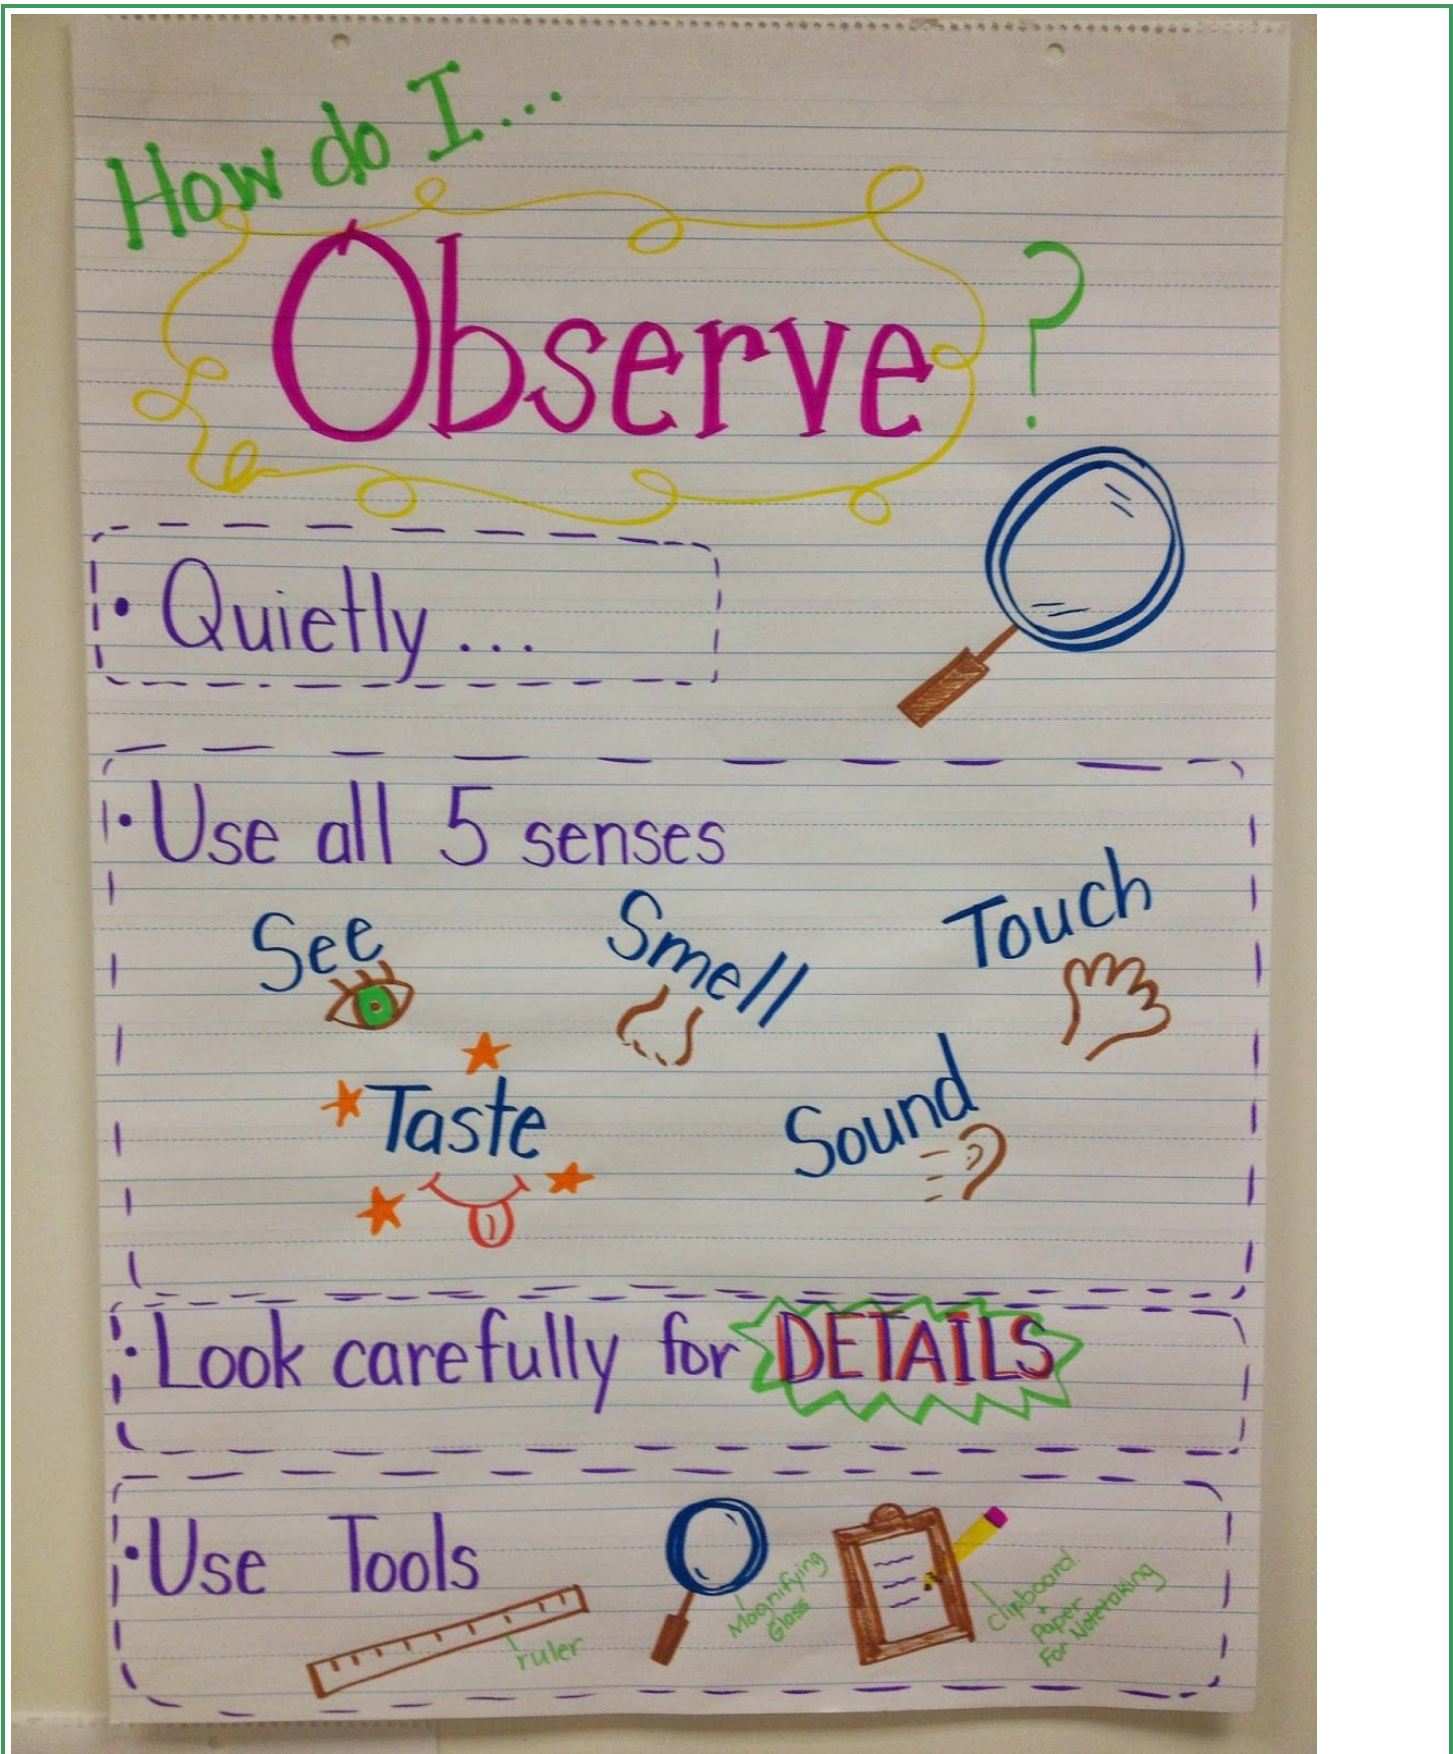 How do I...
Observe ?
• Quietly...
• Use all 5 senses
See
Smell
Touch
Taste
Sound
• Look carefully for DETAILS
• Use Tools
ruler
Magnifying
Glass
Clipboard
+
Paper
For Notetaking